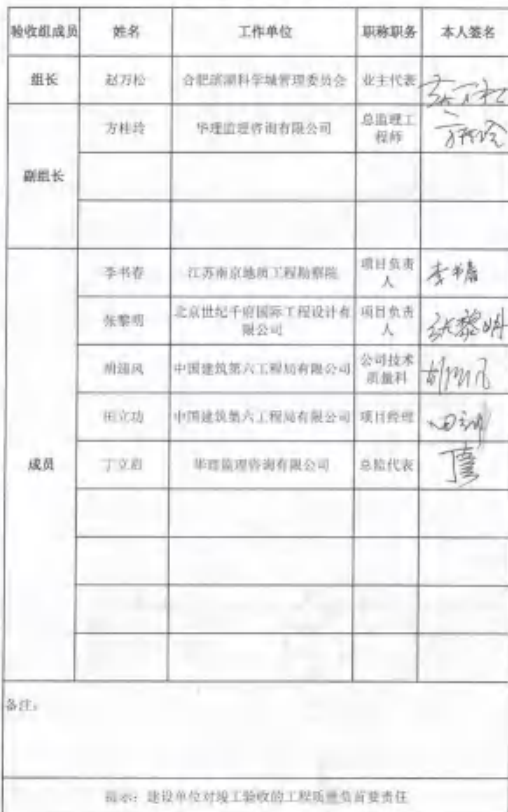 验收组成员 姓名 工作单位 职称职务 本人签名
组长 赵万松 合肥滨湖科学城管理委员会 业主代表 赵万松
副组长 方桂玲 华理监理咨询有限公司 总监理工程师 方桂玲
成员 李书春 江苏南京地质工程勘察院 项目负责人 李书春
张黎明 北京世纪千府国际工程设计有限公司 项目负责人 张黎明
中国建筑第六工程局有限公司 公司技术质量科
田立功 中国建筑第六工程局有限公司 项目经理 田立功
丁立启 华理监理咨询有限公司 总监代表
备注：
提示：建设单位对竣工验收的工程质量负首要责任